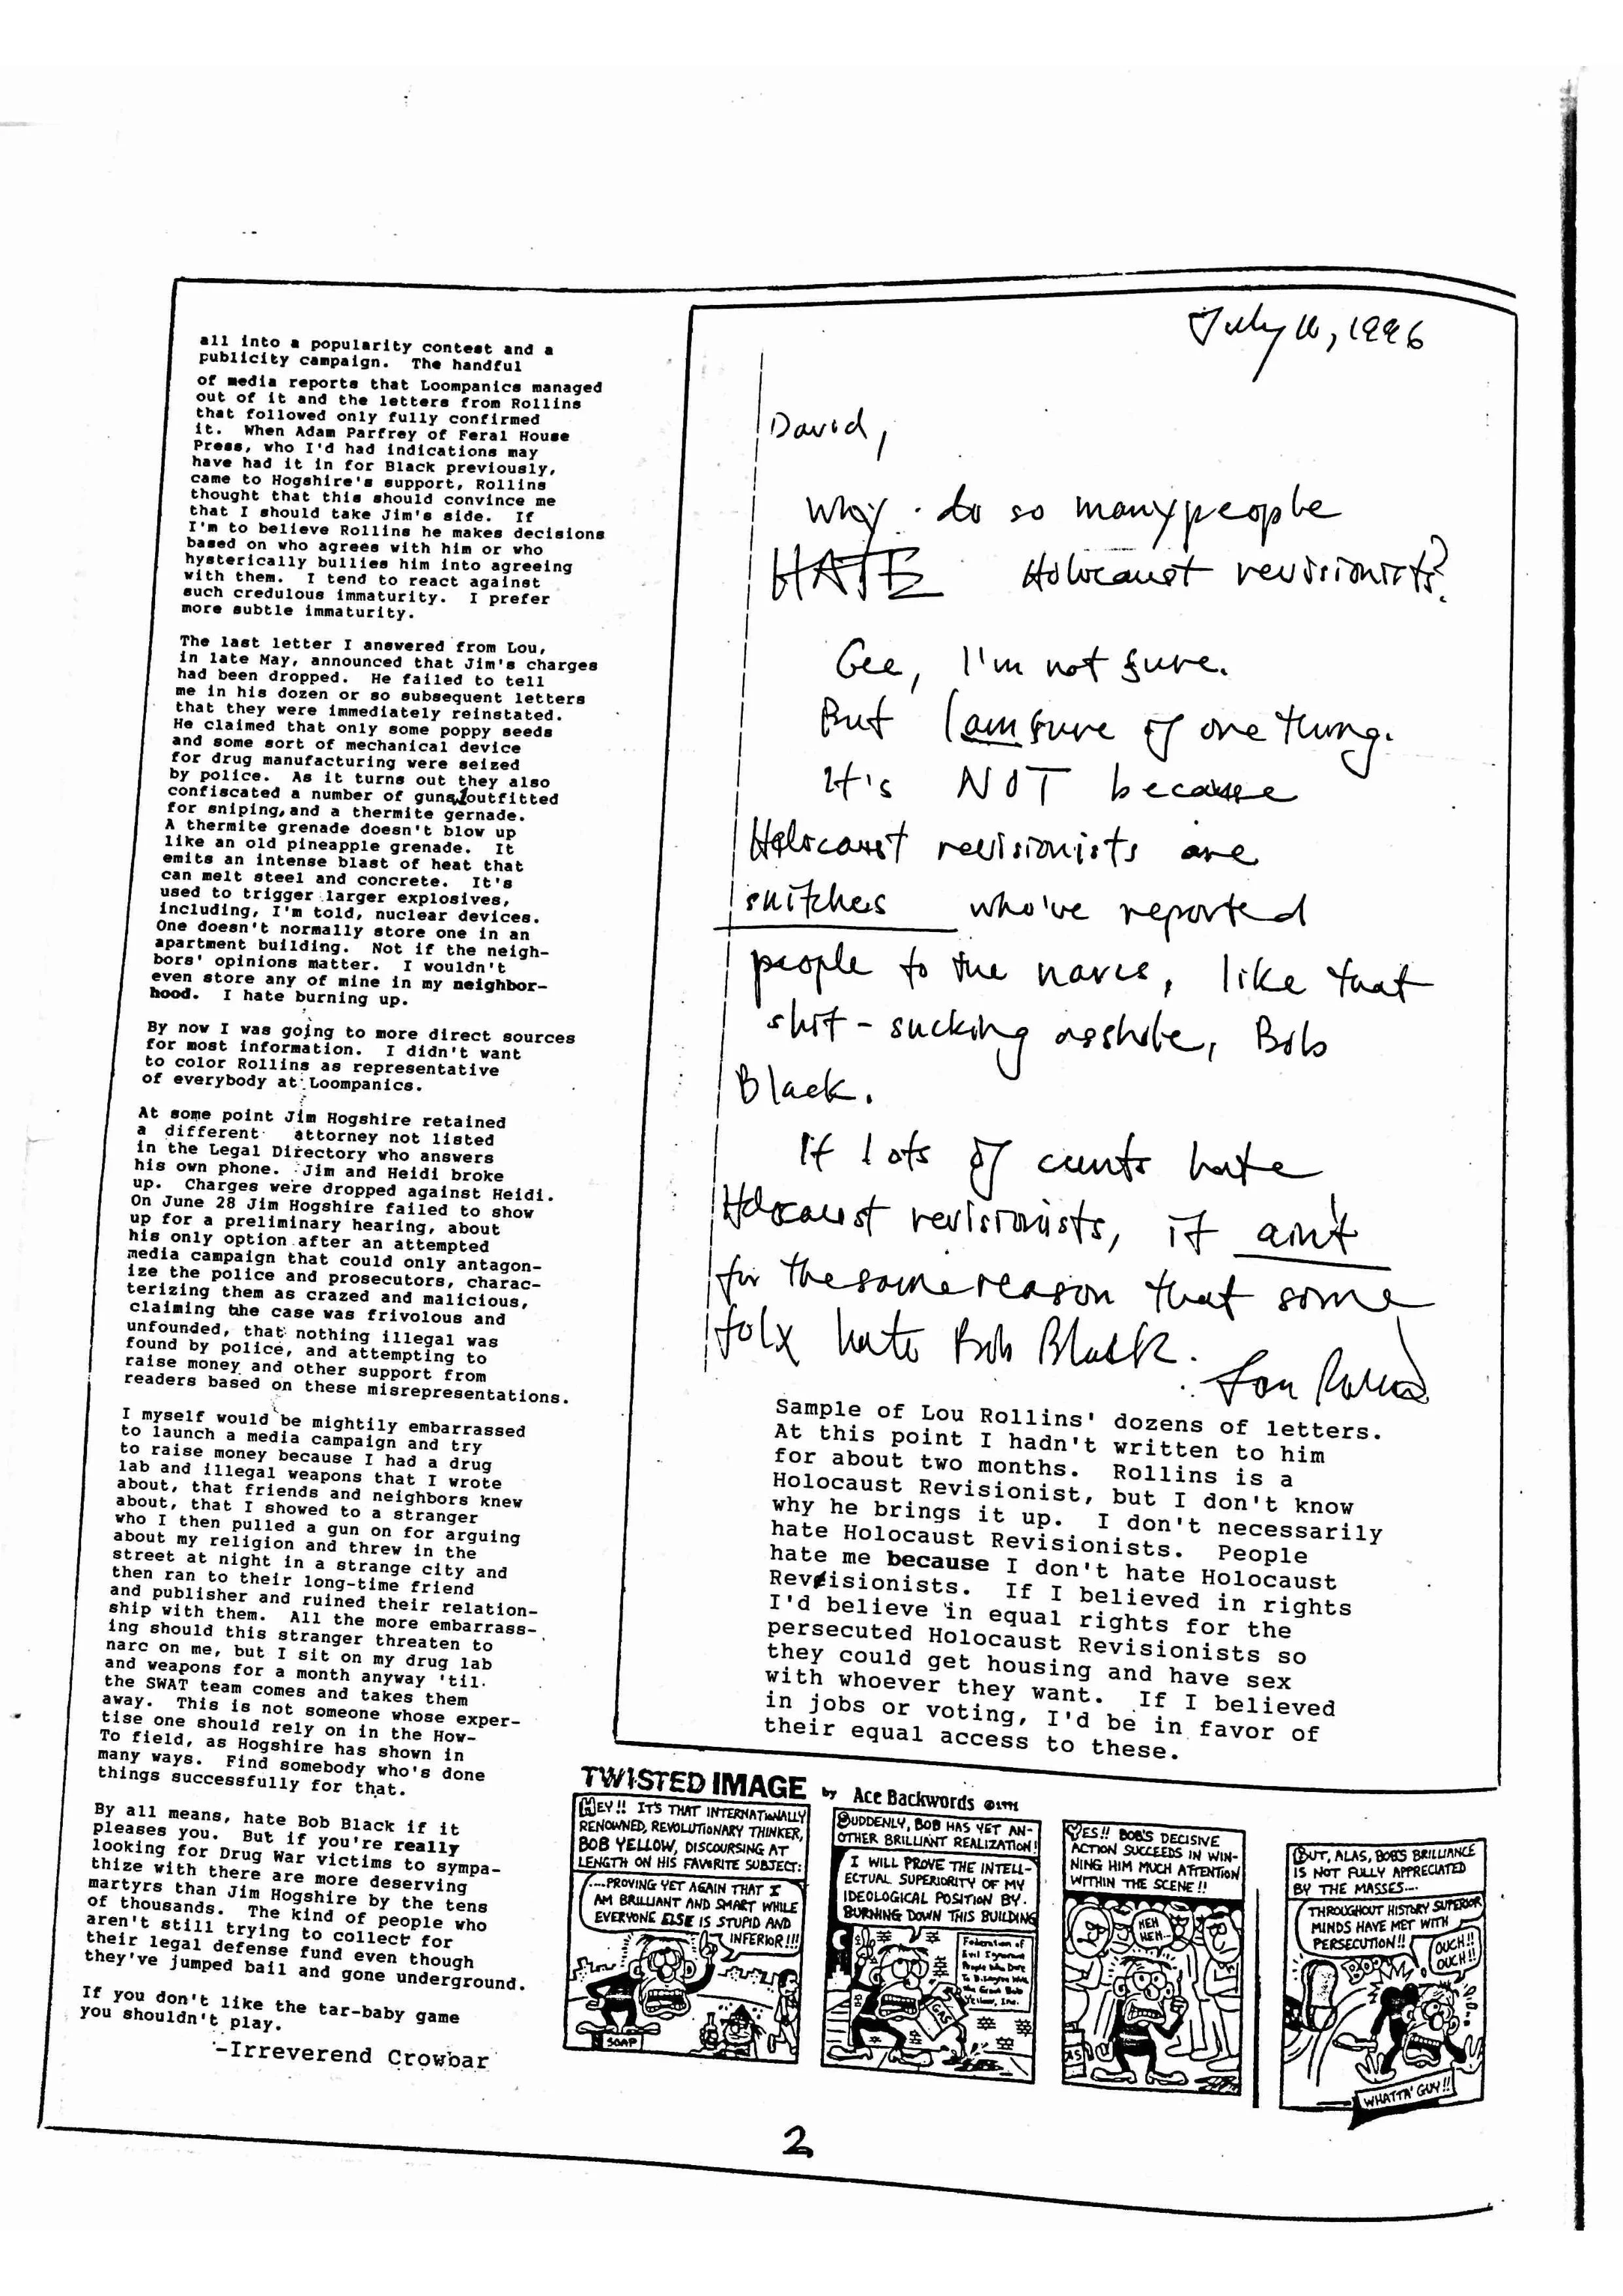 all into a popularity contest and a
publicity campaign. The handful
of media reports that Loompanics managed
out of it and the letters from Rollins
that followed only fully confirmed
it. When Adam Parfrey of Feral House
Press, who I'd had indications may
have had it in for Black previously,
came to Hogshire's support, Rollins
thought that this should convince me
that I should take Jim's side. If
I'm to believe Rollins he makes decisions
based on who agrees with him or who
hysterically bullies him into agreeing
with them. I tend to react against
such credulous immaturity. I prefer
more subtle immaturity.
The last letter I answered from Lou,
in late May, announced that Jim's charges
had been dropped. He failed to tell
me in his dozen or so subsequent letters
that they were immediately reinstated.
He claimed that only some poppy seeds
and some sort of mechanical device
for drug manufacturing were seized
by police. As it turns out they also
confiscated a number of guns, 1 outfitted
for sniping, and a thermite gernade.
A thermite grenade doesn't blow up
like an old pineapple grenade. It
emits an intense blast of heat that
can melt steel and concrete. It's
used to trigger larger explosives,
including, I'm told, nuclear devices.
One doesn't normally store one in an
apartment building. Not if the neigh-
bors' opinions matter. I wouldn't
even store any of mine in my neighbor-
hood. I hate burning up.
By now I was going to more direct sources
for most information. I didn't want
to color Rollins as representative
of everybody at Loompanics.
At some point Jim Hogshire retained
a different attorney not listed
in the Legal Directory who answers
his own phone. Jim and Heidi broke
up. Charges were dropped against Heidi.
On June 28 Jim Hogshire failed to show
up for a preliminary hearing, about
his only option after an attempted
media campaign that could only antagon-
ize the police and prosecutors, charac-
terizing them as crazed and malicious,
claiming the case was frivolous and
unfounded, that nothing illegal was
found by police, and attempting to
raise money and other support from
readers based on these misrepresentations.
I myself would be mightily embarrassed
to launch a media campaign and try
to raise money because I had a drug
lab and illegal weapons that I wrote
about, that friends and neighbors knew
about, that I showed to a stranger
who I then pulled a gun on for arguing
about my religion and threw in the
street at night in a strange city and
then ran to their long-time friend
and publisher and ruined their relation-
ship with them. All the more embarrass-
ing should this stranger threaten to
narc on me, but I sit on my drug lab
and weapons for a month anyway 'til
the SWAT team comes and takes them
away. This is not someone whose exper-
tise one should rely on in the How-
To field, as Hogshire has shown in
many ways. Find somebody who's done
things successfully for that.
By all means, hate Bob Black if it
pleases you. But if you're really
looking for Drug War victims to sympa-
thize with there are more deserving
martyrs than Jim Hogshire by the tens
of thousands. The kind of people who
aren't still trying to collect for
their legal defense fund even though
they've jumped bail and gone underground.
If you don't like the tar-baby game
you shouldn't play.
-Irreverend Crowbar
July 16, 1996
David,
Why do so many people
HATE Holocaust revisionists?
Gee, I'm not sure.
But I am sure of one thing.
It's NOT because
Holocaust revisionists are
snitches who've reported
people to the narcs, like that
shit-sucking asshole, Bob
Black.
If lots of cunts hate
Holocaust revisionists, it ain't
for the same reason that some
folx hate Bob Black.
Lou Rollins
Sample of Lou Rollins' dozens of letters.
At this point I hadn't written to him
for about two months. Rollins is a
Holocaust Revisionist, but I don't know
why he brings it up. I don't necessarily
hate Holocaust Revisionists. People
hate me because I don't hate Holocaust
Revisionists. If I believed in rights
I'd believe in equal rights for the
persecuted Holocaust Revisionists so
they could get housing and have sex
with whoever they want. If I believed
in jobs or voting, I'd be in favor of
their equal access to these.
TWISTED IMAGE by Ace Backwords ©1991
HEY!! IT'S THAT INTERNATIONALLY
RENOWNED, REVOLUTIONARY THINKER,
BOB YELLOW, DISCOURSING AT
LENGTH ON HIS FAVORITE SUBJECT:
....PROVING YET AGAIN THAT I
AM BRILLIANT AND SMART WHILE
EVERYONE ELSE IS STUPID AND
INFERIOR!!!
SOAP
SUDDENLY, BOB HAS YET AN-
OTHER BRILLIANT REALIZATION!
I WILL PROVE THE INTELL-
ECTUAL SUPERIORITY OF MY
IDEOLOGICAL POSITION BY
BURNING DOWN THIS BUILDING
Federation of
Evil Ignorant
People Who Dare
To Disagree With
the Great Bob
Yellow, Inc.
GAS
YES!! BOB'S DECISIVE
ACTION SUCCEEDS IN WIN-
NING HIM MUCH ATTENTION
WITHIN THE SCENE!!
HEH
HEH...
AS
BUT, ALAS, BOB'S BRILLIANCE
IS NOT FULLY APPRECIATED
BY THE MASSES....
THROUGHOUT HISTORY SUPERIOR
MINDS HAVE MET WITH
PERSECUTION!!
OUCH!!
OUCH!!
BOOM
WHATTA' GUY!!
2